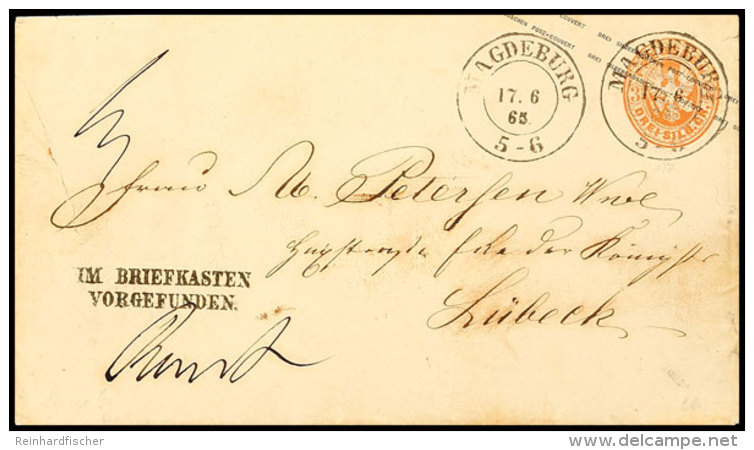 SCHEN POST-COUVERT DREI SILBER
MAGDEBURG
17. 6
65.
5-6
MAGDEBURG
17. 6
5-
DREI SILB. GR.
Frau M. Petersen Wwe
Ecke der Königstr
IM BRIEFKASTEN
VORGEFUNDEN.
Lübeck
Reinhardfischer
www.delcampe.net